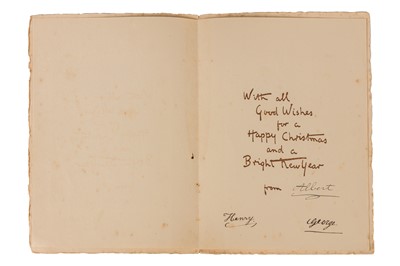 With all
Good Wishes
for a
Happy Christmas
and a
Bright New Year
from Albert
Henry
George